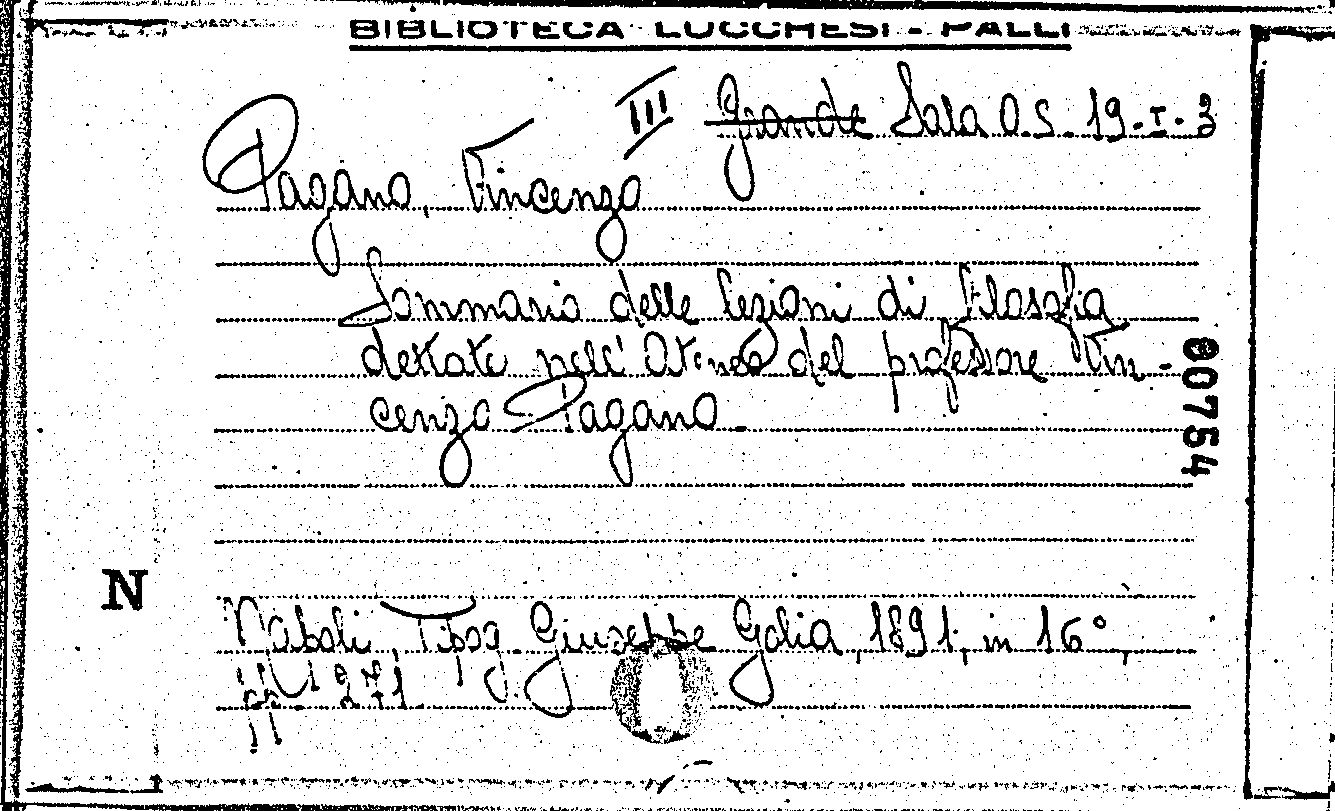 BIBLIOTECA LUCCHESI - PALLI
III Grande Sala O.S. 19-I-3
Pagano, Vincenzo
Sommario delle lezioni di Filosofia
dettate nell'Ateneo del professore Vin-
cenzo Pagano.
80754
N
Napoli, Tipog. Giuseppe Golia, 1891, in 16°,
pp. 271.